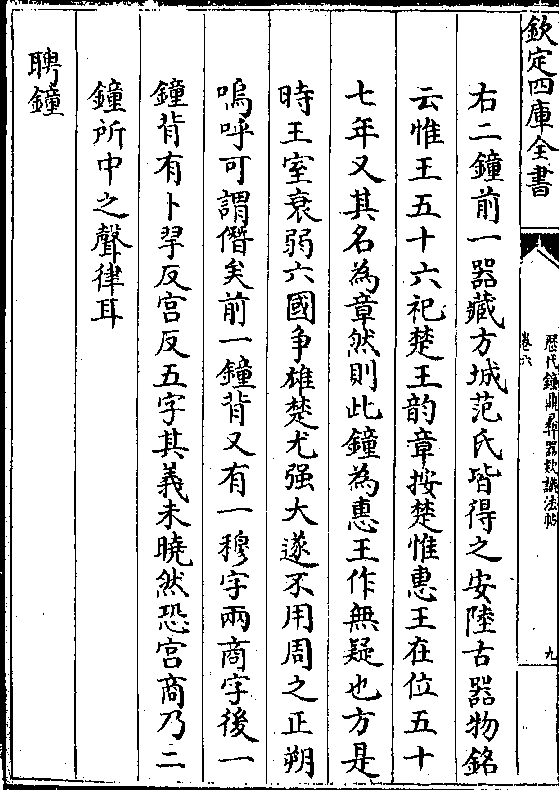 欽定四庫全書
歷代鐘鼎彝器款識法帖
卷六
九
右二鐘前一器藏方城范氏皆得之安陸古器物銘
云惟王五十六祀楚王韵章按楚惟惠王在位五十
七年又其名為章然則此鐘為惠王作無疑也方是
時王室衰弱六國爭雄楚尤强大遂不用周之正朔
嗚呼可謂僭矣前一鐘背又有一穆字兩商字後一
鐘背有卜羽反宮反五字其義未曉然恐宮商乃二
鐘所中之聲律耳
聘鐘